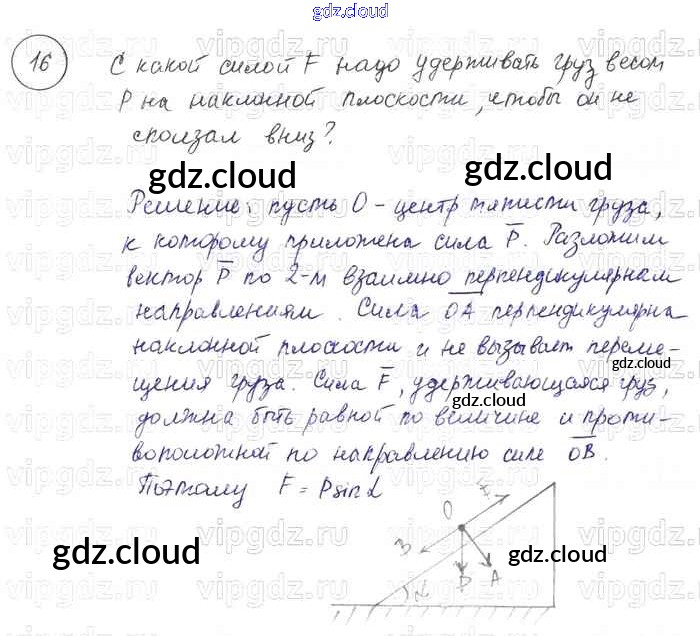 gdz.cloud
16
С какой силой F надо удерживать груз весом
P на наклонной плоскости, чтобы он не
сползал вниз?
gdz.cloud
gdz.cloud
Решение: пусть O - центр тяжести груза,
к которому приложена сила P̅. Разложим
вектор P̅ по 2-м взаимно перпендикулярным
направлениям. Сила O̅A̅ перпендикулярна
наклонной плоскости и не вызывает переме-
gdz.cloud
щения груза. Сила F̅, удерживающаяся груз,
gdz.cloud
должна быть равной по величине и проти-
воположной по направлению силе O̅B̅.
Поэтому F = P sin α
F
O
B
P A
α
gdz.cloud
gdz.cloud
vipgdz.ru